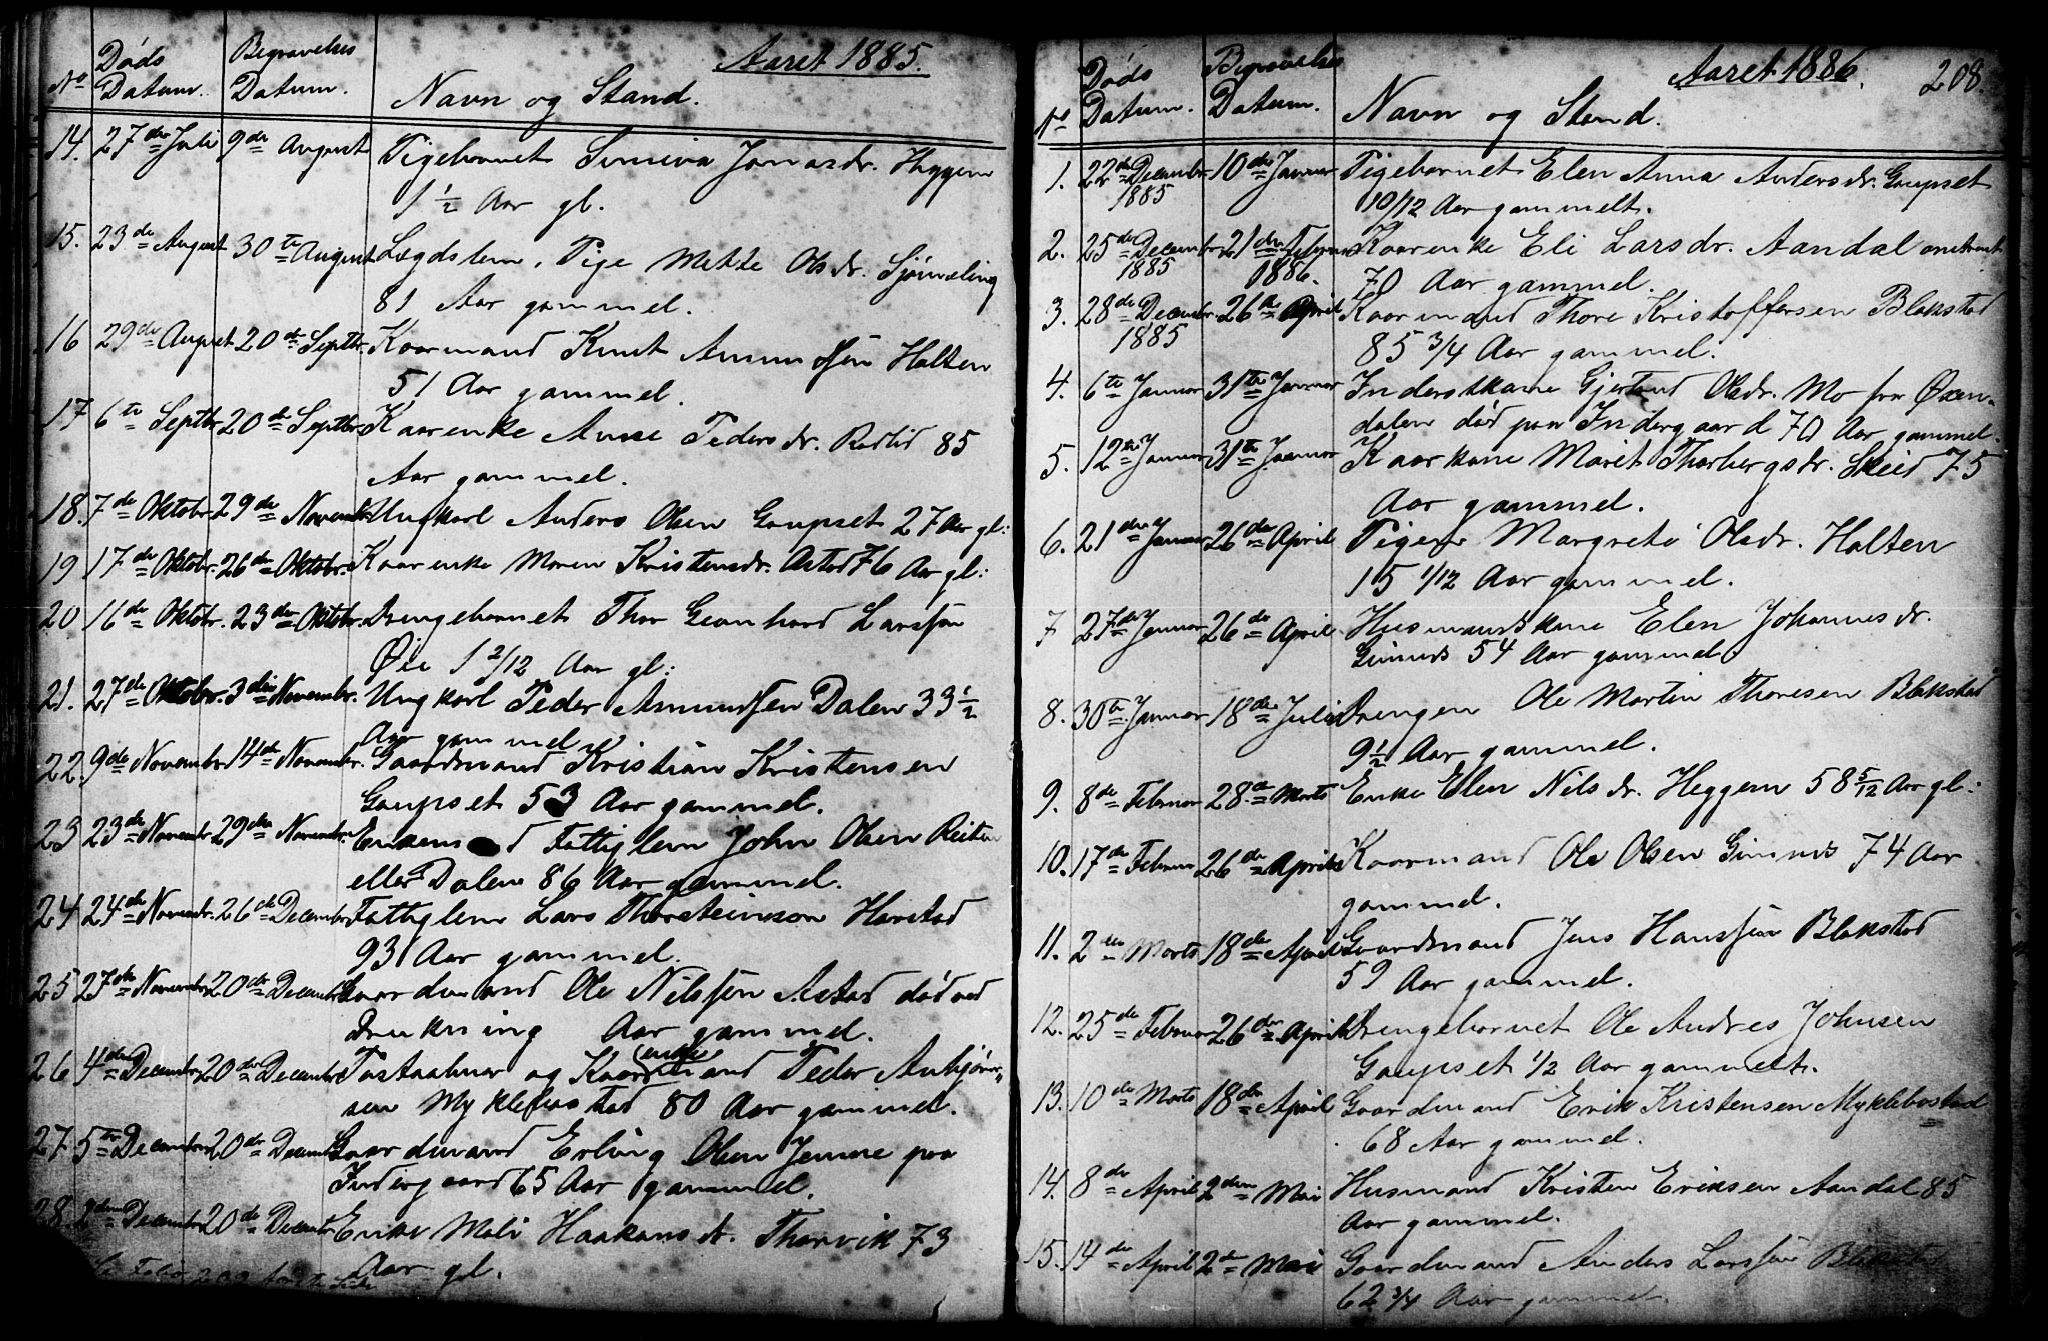 Aaret 1885.
No Døds Datum. Begravelses Datum. Navn og Stand.
14. 27de Juli 9de August Pigebarnet Siniva Jonasdr. Heggem
1 1/2 Aar gl.
15. 23de August 30te August Lægdslem, Pige Mette Olsdr. Sjømæling
81 Aar gammel.
16 29de August 20de Septbr. Kaarmand Knut Amundsen Holten
51 Aar gammel.
17 6te Septbr. 20de Septbr. Kaarenke Anne Pedersdr. Rødlid 85
Aar gammel.
18. 7de Oktobr. 29de Novembr. Ungkarl Anders Olsen Gaupset 27 Aar gl:
19 17de Oktobr. 26de Oktobr. Kaarenke Maren Kristensdr. Astad 76 Aar gl:
20 16de Oktobr. 23de Oktobr. Drengebarnet Thor Leonhard Larssen
Øie 1 2/12 Aar gl:
21. 27de Oktobr. 3die Novembr. Ungkarl Peder Amundsen Dalen 33 1/2
Aar gammel
22. 9de Novembr. 14de Novembr. Gaardmand Kristian Kristensen
Gaupset 53 Aar gammel.
23 23de Novembr. 29de Novembr. Enkemand Fattiglem John Olsen Reiten
eller Dalen 86 Aar gammel.
24 24de Novembr. 26de Decembr. Fattiglem Lars Thorsteinsen Harstad
93 Aar gammel.
25 27de Novembr. 20de Decembr. Gaardmand Ole Nilssen Astad død ved
Drukning Aar gammel.
26 4de Decembr. 20de Decembr. Postaabner og Kaarenkemand Peder Asbjørn-
sen Myklebostad 80 Aar gammel.
27 5te Decembr. 20de Decembr. Gaardmand Erling Olsen Jenne paa
Indergaard 65 Aar gammel.
28 2den Decembr. 20de Decembr. Enke Mali Haakonsdr. Thorvik 73
Aar gl.
Aaret 1886. 208.
No Døds Datum. Begravelses Datum. Navn og Stand.
1. 22de Decembr. 10de Januar Pigebarnet Elen Anna Andersdr. Gaupset
1885 10/12 Aar gammelt.
2. 25de Decembr. 21de Februar Kaarenke Eli Larsdr. Aandal
1885 1886. 70 Aar gammel.
3. 28de Decembr. 26de April Kaarmand Thore Kristoffersen Blakstad
1885 85 3/4 Aar gammel.
4. 6te Januar 31te Januar Inderstkone Gjertrud Olsdr. Mo fra Øxen-
dalen død paa Indergaard 70 Aar gammel.
5. 12te Januar 31te Januar Kaarkone Marit Thorbergsdr. Skeid 75
Aar gammel.
6. 21de Januar 26de April Pigen Margrete Olsdr. Holten
15 1/12 Aar gammel.
7 27de Januar 26de April Husmandskone Elen Johannesdr.
Gimnes 54 Aar gammel
8. 30te Januar 18de Juli Drengen Ole Martin Thoresen Blakstad
9 1/2 Aar gammel.
9. 8de Februar 28de Marts Enke Elen Nilsdr. Heggem 58 5/12 Aar gl:
10. 17de Februar 26de April Kaarmand Ole Olsen Gimnes 74 Aar
gammel.
11. 2den Marts 18de April Gaardmand Jens Hanssen Blakstad
59 Aar gammel.
12. 25de Februar 26de April Drengebarnet Ole Andres Johnsen
Gaupset 1/2 Aar gammelt.
13. 10de Marts 18de April Gaardmand Erik Kristensen Myklebostad
68 Aar gammel.
14. 8de April 2den Mai Husmand Kristen Eriksen Aandal 85
Aar gammel.
15. 14de April 2de Mai Gaardmand Anders Larssen Blakstad
62 3/4 Aar gammel.